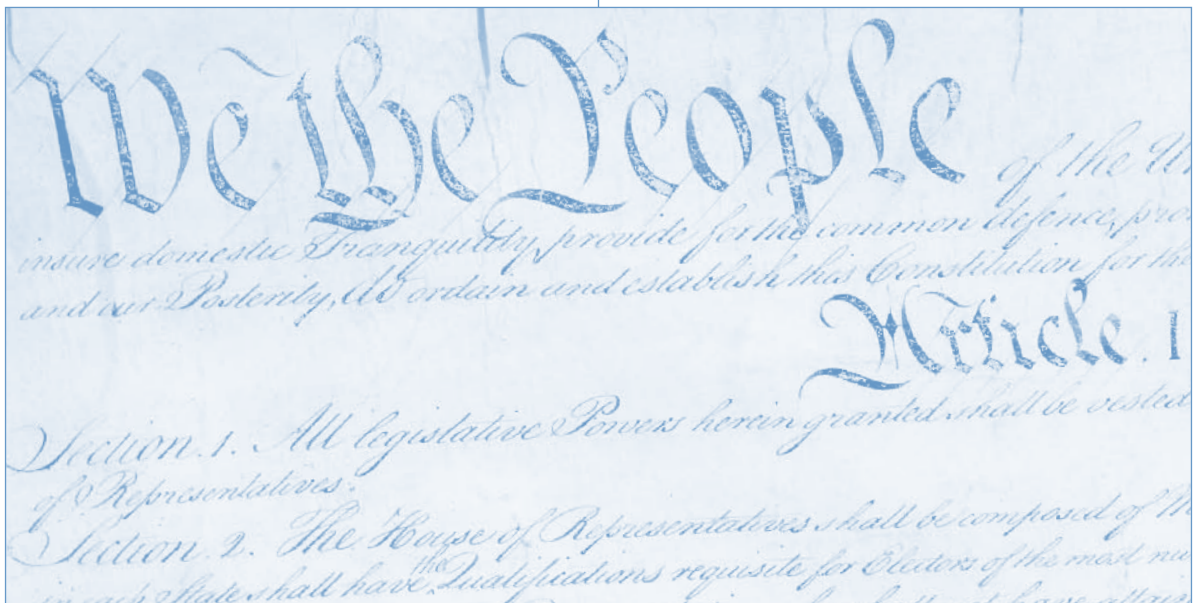 We the People of the Un
insure domestic Tranquility, provide for the common defence, pro
and our Posterity, do ordain and establish this Constitution for the
Article. I
Section. 1. All legislative Powers herein granted shall be vested
of Representatives.
Section. 2. The House of Representatives shall be composed of M
the
in each State shall have Qualifications requisite for Electors of the most nu
have attain